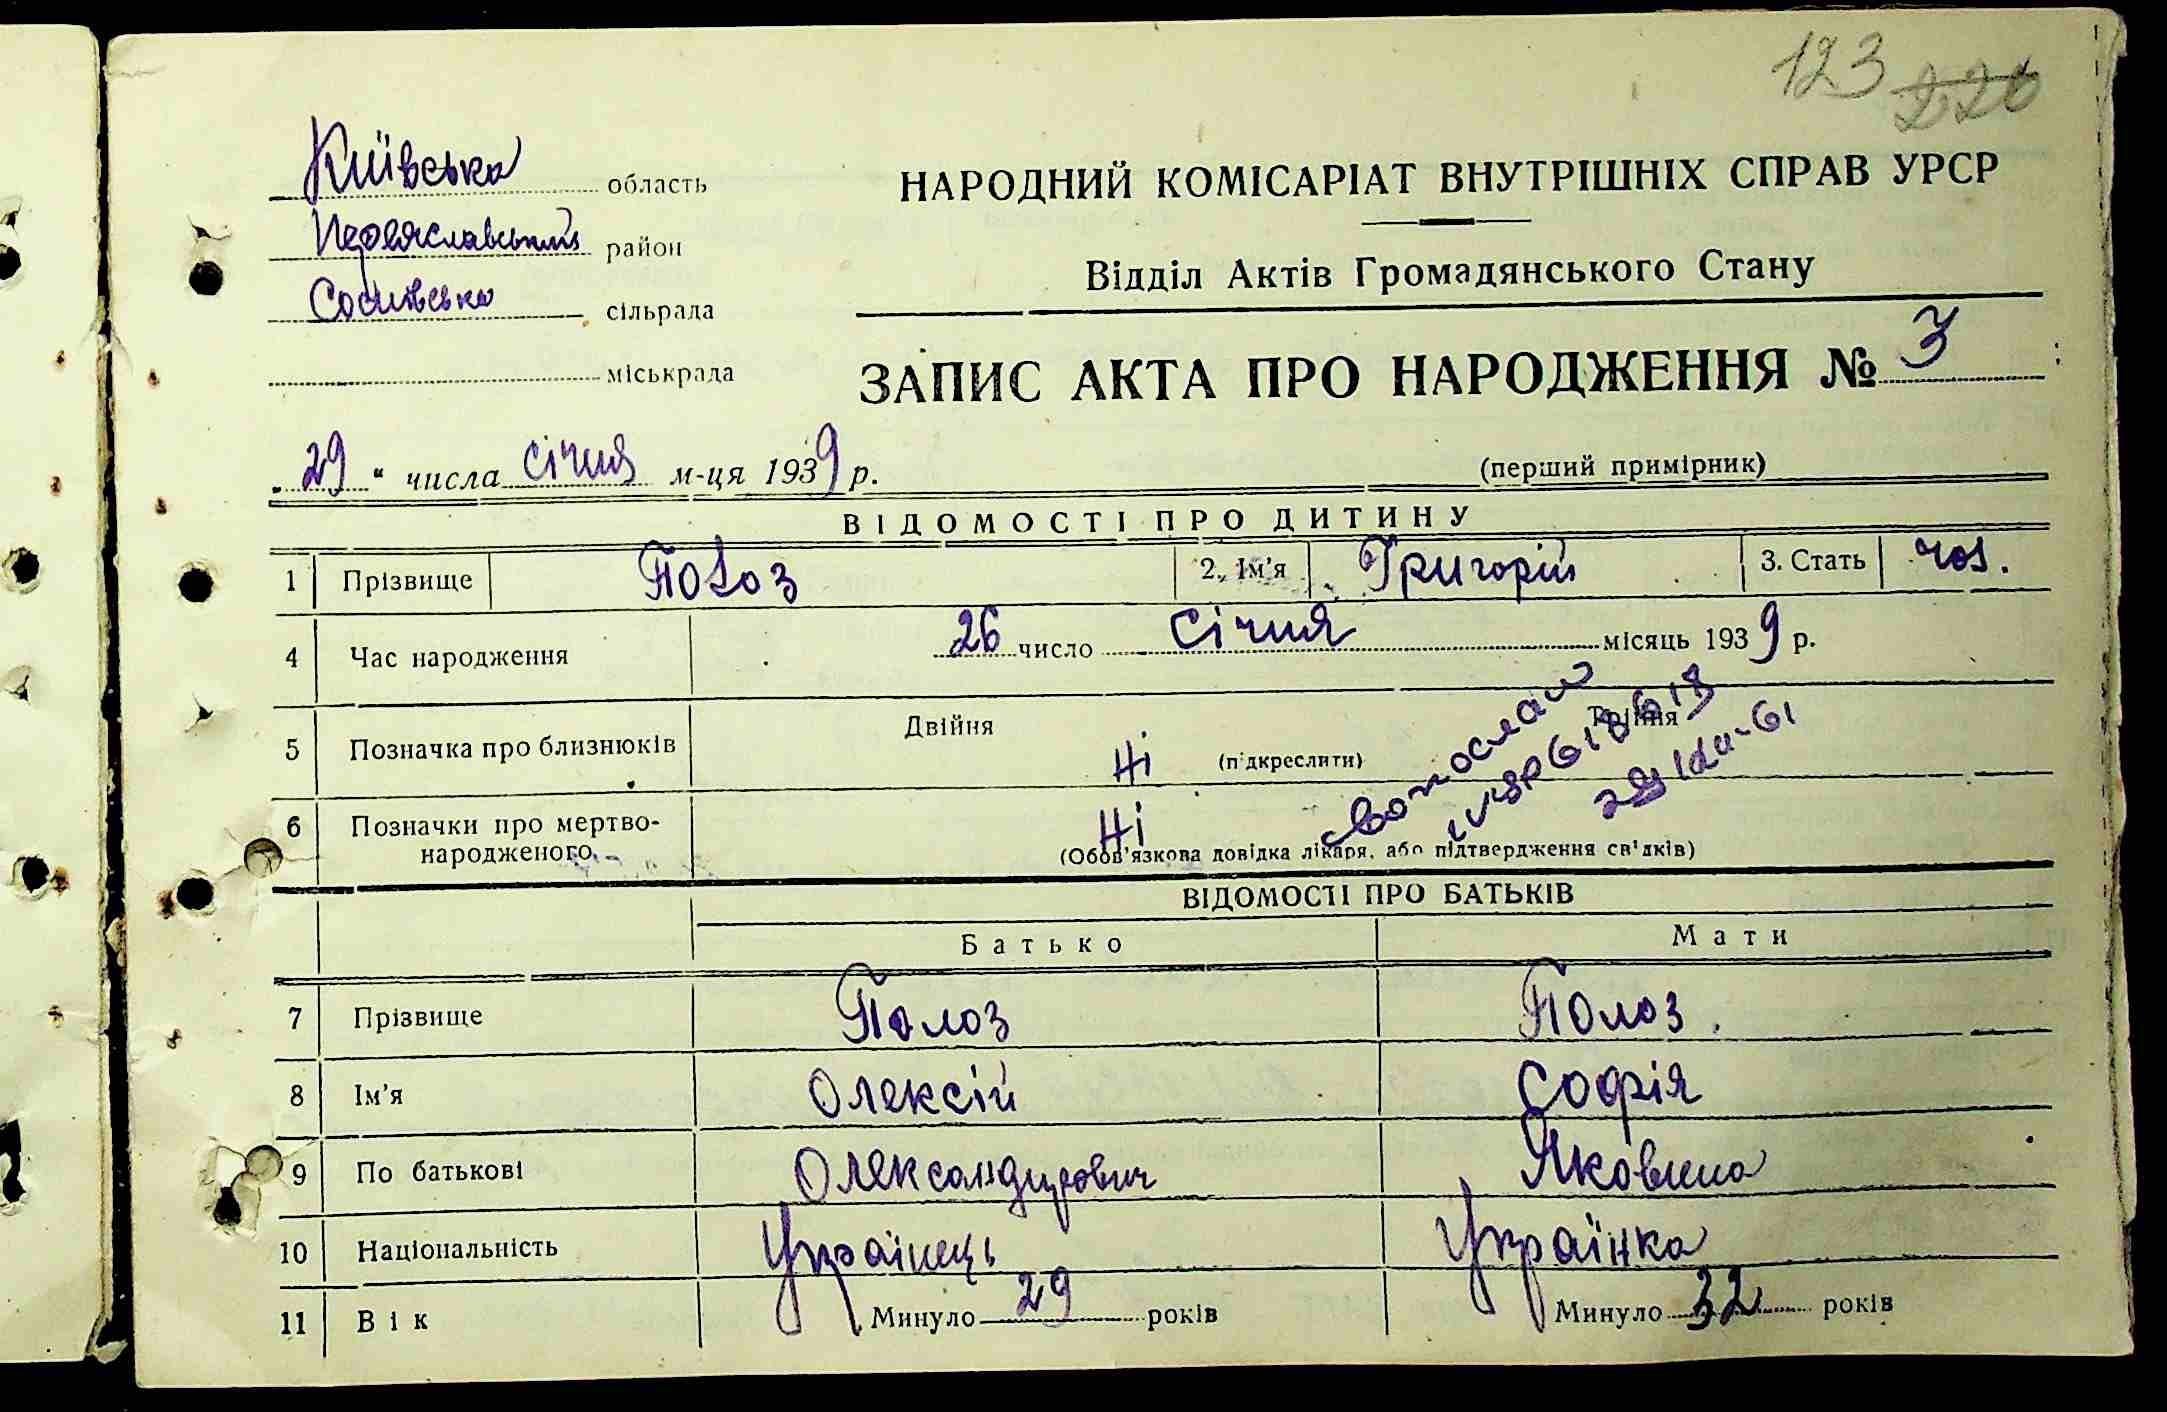 123 226
Київська область
Переяславський район
Сомківська сільрада
міськрада
НАРОДНИЙ КОМІСАРІАТ ВНУТРІШНІХ СПРАВ УРСР
Відділ Актів Громадянського Стану
ЗАПИС АКТА ПРО НАРОДЖЕННЯ № 3
„29“ числа січня м-ця 1939 р.
(перший примірник)
ВІДОМОСТІ ПРО ДИТИНУ
1 Прізвище Полоз 2. Ім'я Григорій 3. Стать чол.
4 Час народження 26 число січня місяць 1939 р.
5 Позначка про близнюків Двійня Ні (підкреслити) Трійня
6 Позначки про мертво-
народженого Ні
(Обов'язкова довідка лікаря, або підтвердження свідків)
ВІДОМОСТІ ПРО БАТЬКІВ
Батько Мати
7 Прізвище Полоз Полоз
8 Ім'я Олексій Софія
9 По батькові Олександрович Яковлина
10 Національність Українець Українка
11 Вік Минуло 29 років Минуло 32 років